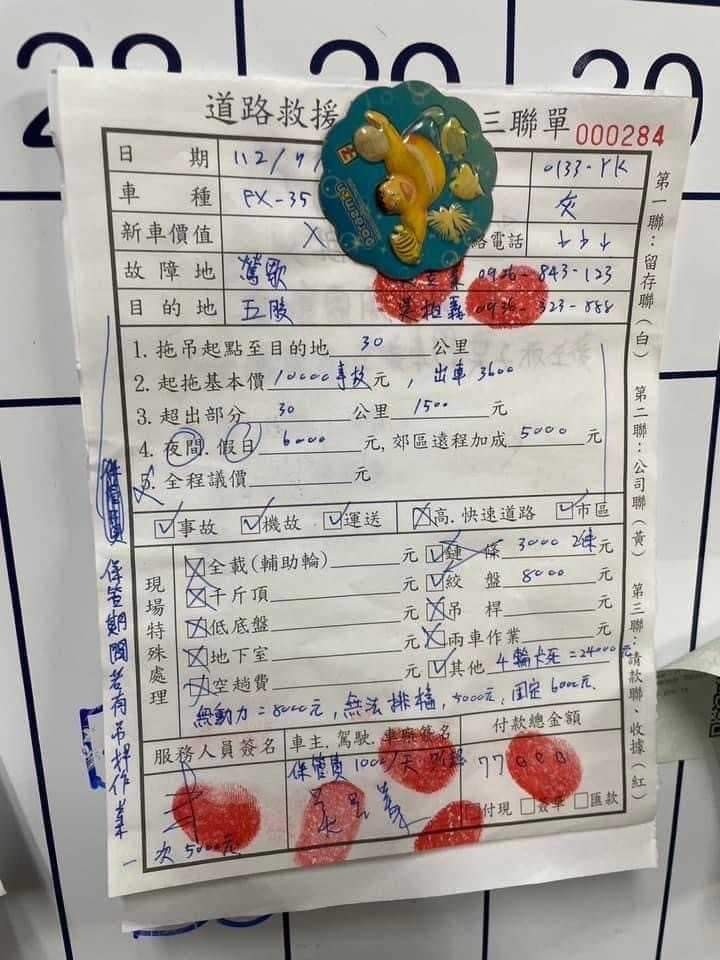 28 29 30
道路救援 三聯單 000284
日期 112/7/ 0133-YK
車種 PX-35 灰
新車價值 X 絡電話 ↓↓↓
故障地 鶯歌 0926-843-123
目的地 五股 0936-323-888
1. 拖吊起點至目的地 30 公里
2. 起拖基本價 10000 事故 元, 出車 3600
3. 超出部分 30 公里 1500 元
4. 夜間. 假日 6000 元, 郊區遠程加成 5000 元
5. 全程議價 元
事故 機故 運送 高.快速道路 市區
現場特殊處理
全載(輔助輪) 元 鏈條 3000 2條 元
千斤頂 元 絞盤 8000 元
低底盤 元 吊桿 元
地下室 元 兩車作業 元
空趟費 元 其他 4輪卡死=24000元
無動力=8000元, 無法排檔, 5000元, 固定6000元.
服務人員簽名 車主.駕駛.車廠簽名 付款總金額
保管費 100/天 77000
付現 簽單 匯款
保管期間若有吊桿作業一次5000元
第一聯:留存聯(白) 第二聯:公司聯(黃) 第三聯:請款聯、收據(紅)
doraemon